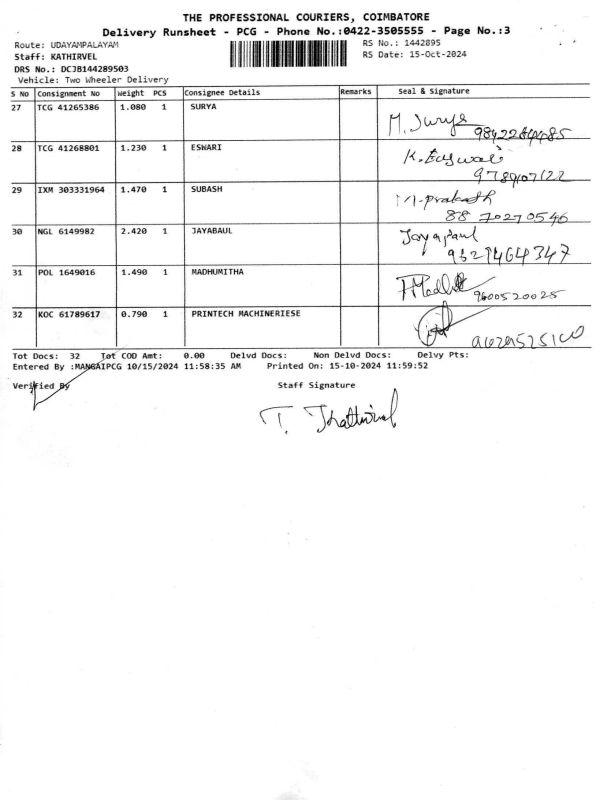 THE PROFESSIONAL COURIERS, COIMBATORE
Delivery Runsheet - PCG - Phone No.:0422-3505555 - Page No.:3
Route: UDAYAMPALAYAM
RS No.: 1442895
Staff: KATHIRVEL
RS Date: 15-Oct-2024
DRS No.: DCJB144289503
Vehicle: Two Wheeler Delivery
S No Consignment No Weight PCS Consignee Details Remarks Seal & Signature
27 TCG 41265386 1.080 1 SURYA
M. Surya
28 TCG 41268801 1.230 1 ESWARI
K. Eswari
29 IXM 303331964 1.470 1 SUBASH
M. prakash
88 70270546
30 NGL 6149982 2.420 1 JAYABAUL
Jayapaul
31 POL 1649016 1.490 1 MADHUMITHA
9600520025
32 KOC 61789617 0.790 1 PRINTECH MACHINERIESE
Tot Docs: 32 Tot COD Amt: 0.00 Delvd Docs: Non Delvd Docs: Delvy Pts:
Entered By :MANGAIPCG 10/15/2024 11:58:35 AM Printed On: 15-10-2024 11:59:52
Verified By Staff Signature